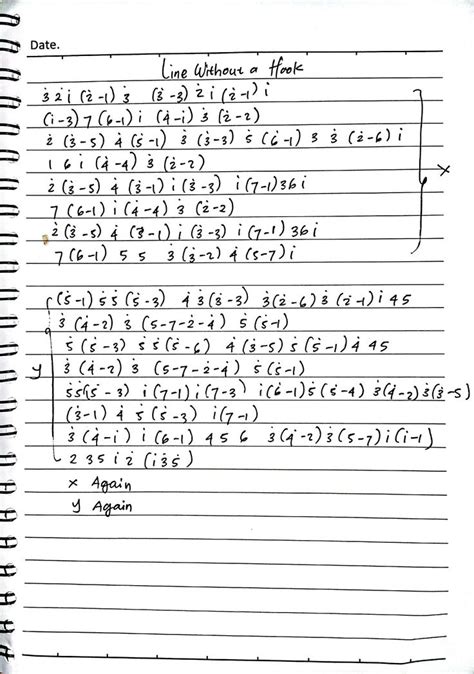 Date.
Line Without a Hook
3̇ 2̇ i (2̇-1) 3̇ (3̇-3) 2̇ i (2̇-1) i
(i-3) 7 (6-1) i (4̇-i) 3̇ (2̇-2)
2̇ (3̇-5) 4̇ (5̇-1) 3̇ (3̇-3) 5̇ (6-1) 3̇ 3̇ (2̇-6) i
1 6 i (4̇-4) 3̇ (2̇-2)
2̇ (3̇-5) 4̇ (3̇-1) i (3̇-3) i (7-1) 3 6 i
7 (6-1) i (4̇-4) 3̇ (2̇-2)
2̇ (3̇-5) 4̇ (3̇-1) i (3̇-3) i (7-1) 3 6 i
7 (6-1) 5 5 3̇ (3̇-2) 4̇ (5-7) i
x
(5̇-1) 5̇ 5̇ (5̇-3) 4̇ 3̇ (3̇-3) 3̇ (2̇-6) 3̇ (2̇-1) i 4 5
3̇ (4̇-2) 3̇ (5-7-2̇-4̇) 5̇ (5̇-1)
5̇ (5̇-3) 5̇ 5̇ (5̇-6) 4̇ (3̇-5) 5̇ (5̇-1) 4̇ 4 5
y 3̇ (4̇-2) 3̇ (5-7-2̇-4̇) 5̇ (5̇-1)
5̇ 5̇ (5̇-3) i (7-1) i (7-3) i (6-1) 5̇ (5̇-4) 3̇ (4̇-2) 3̇ (3̇-5)
(3̇-1) 4̇ 5̇ (5̇-3) i (7-1)
3̇ (4̇-i) i (6-1) 4 5 6 3̇ (4̇-2) 3̇ (5-7) i (i-1)
2 3 5 i 2̇ (i 3̇ 5̇)
x Again
y Again